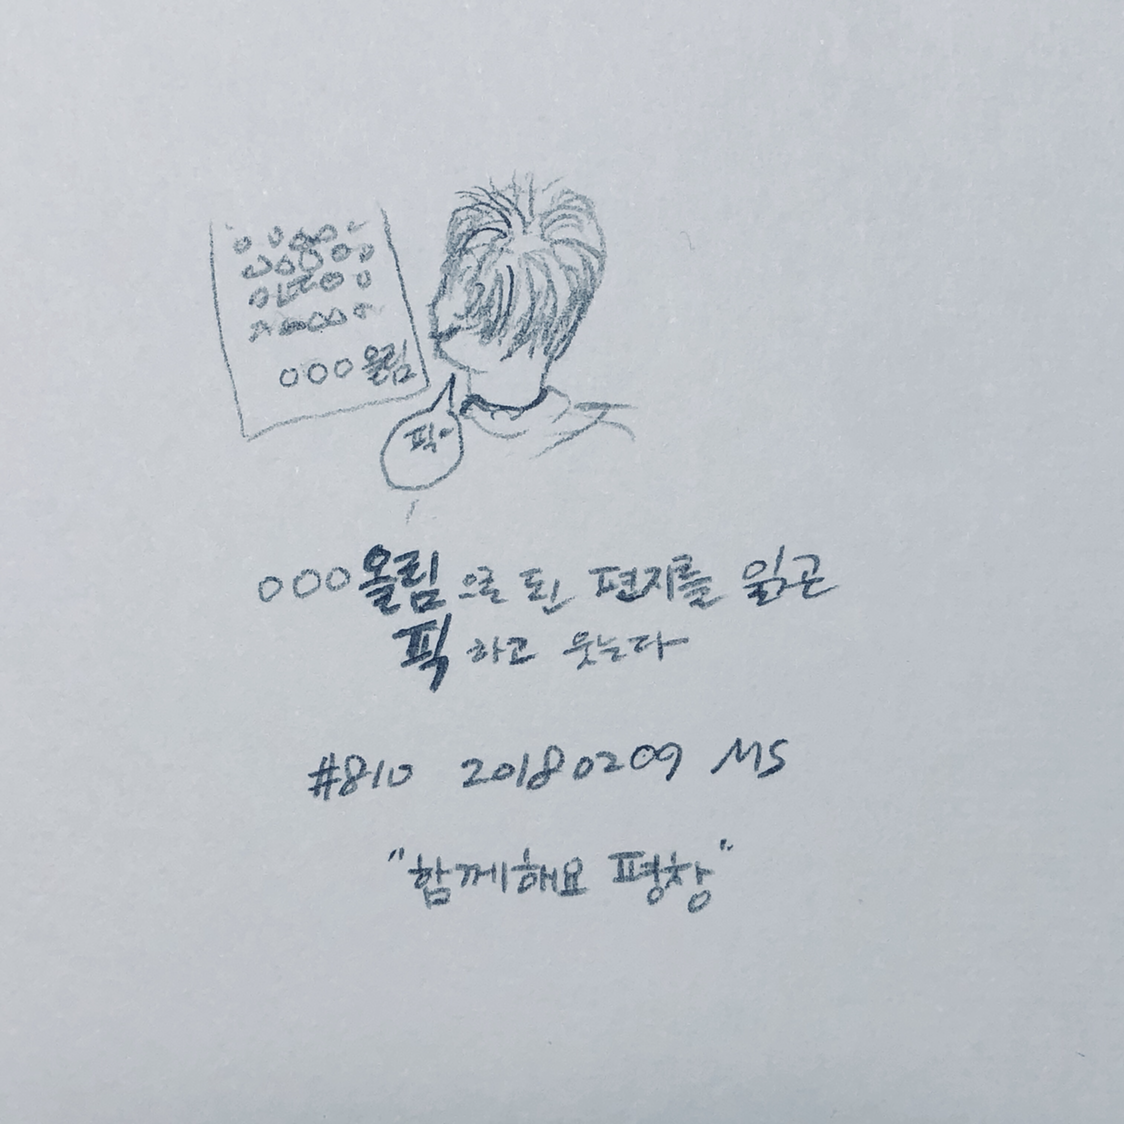 ○○○ 올림
픽
○○○ 올림 으로 된 편지를 읽곤
픽 하고 웃는다
#810 20180209 MS
"함께해요 평창"